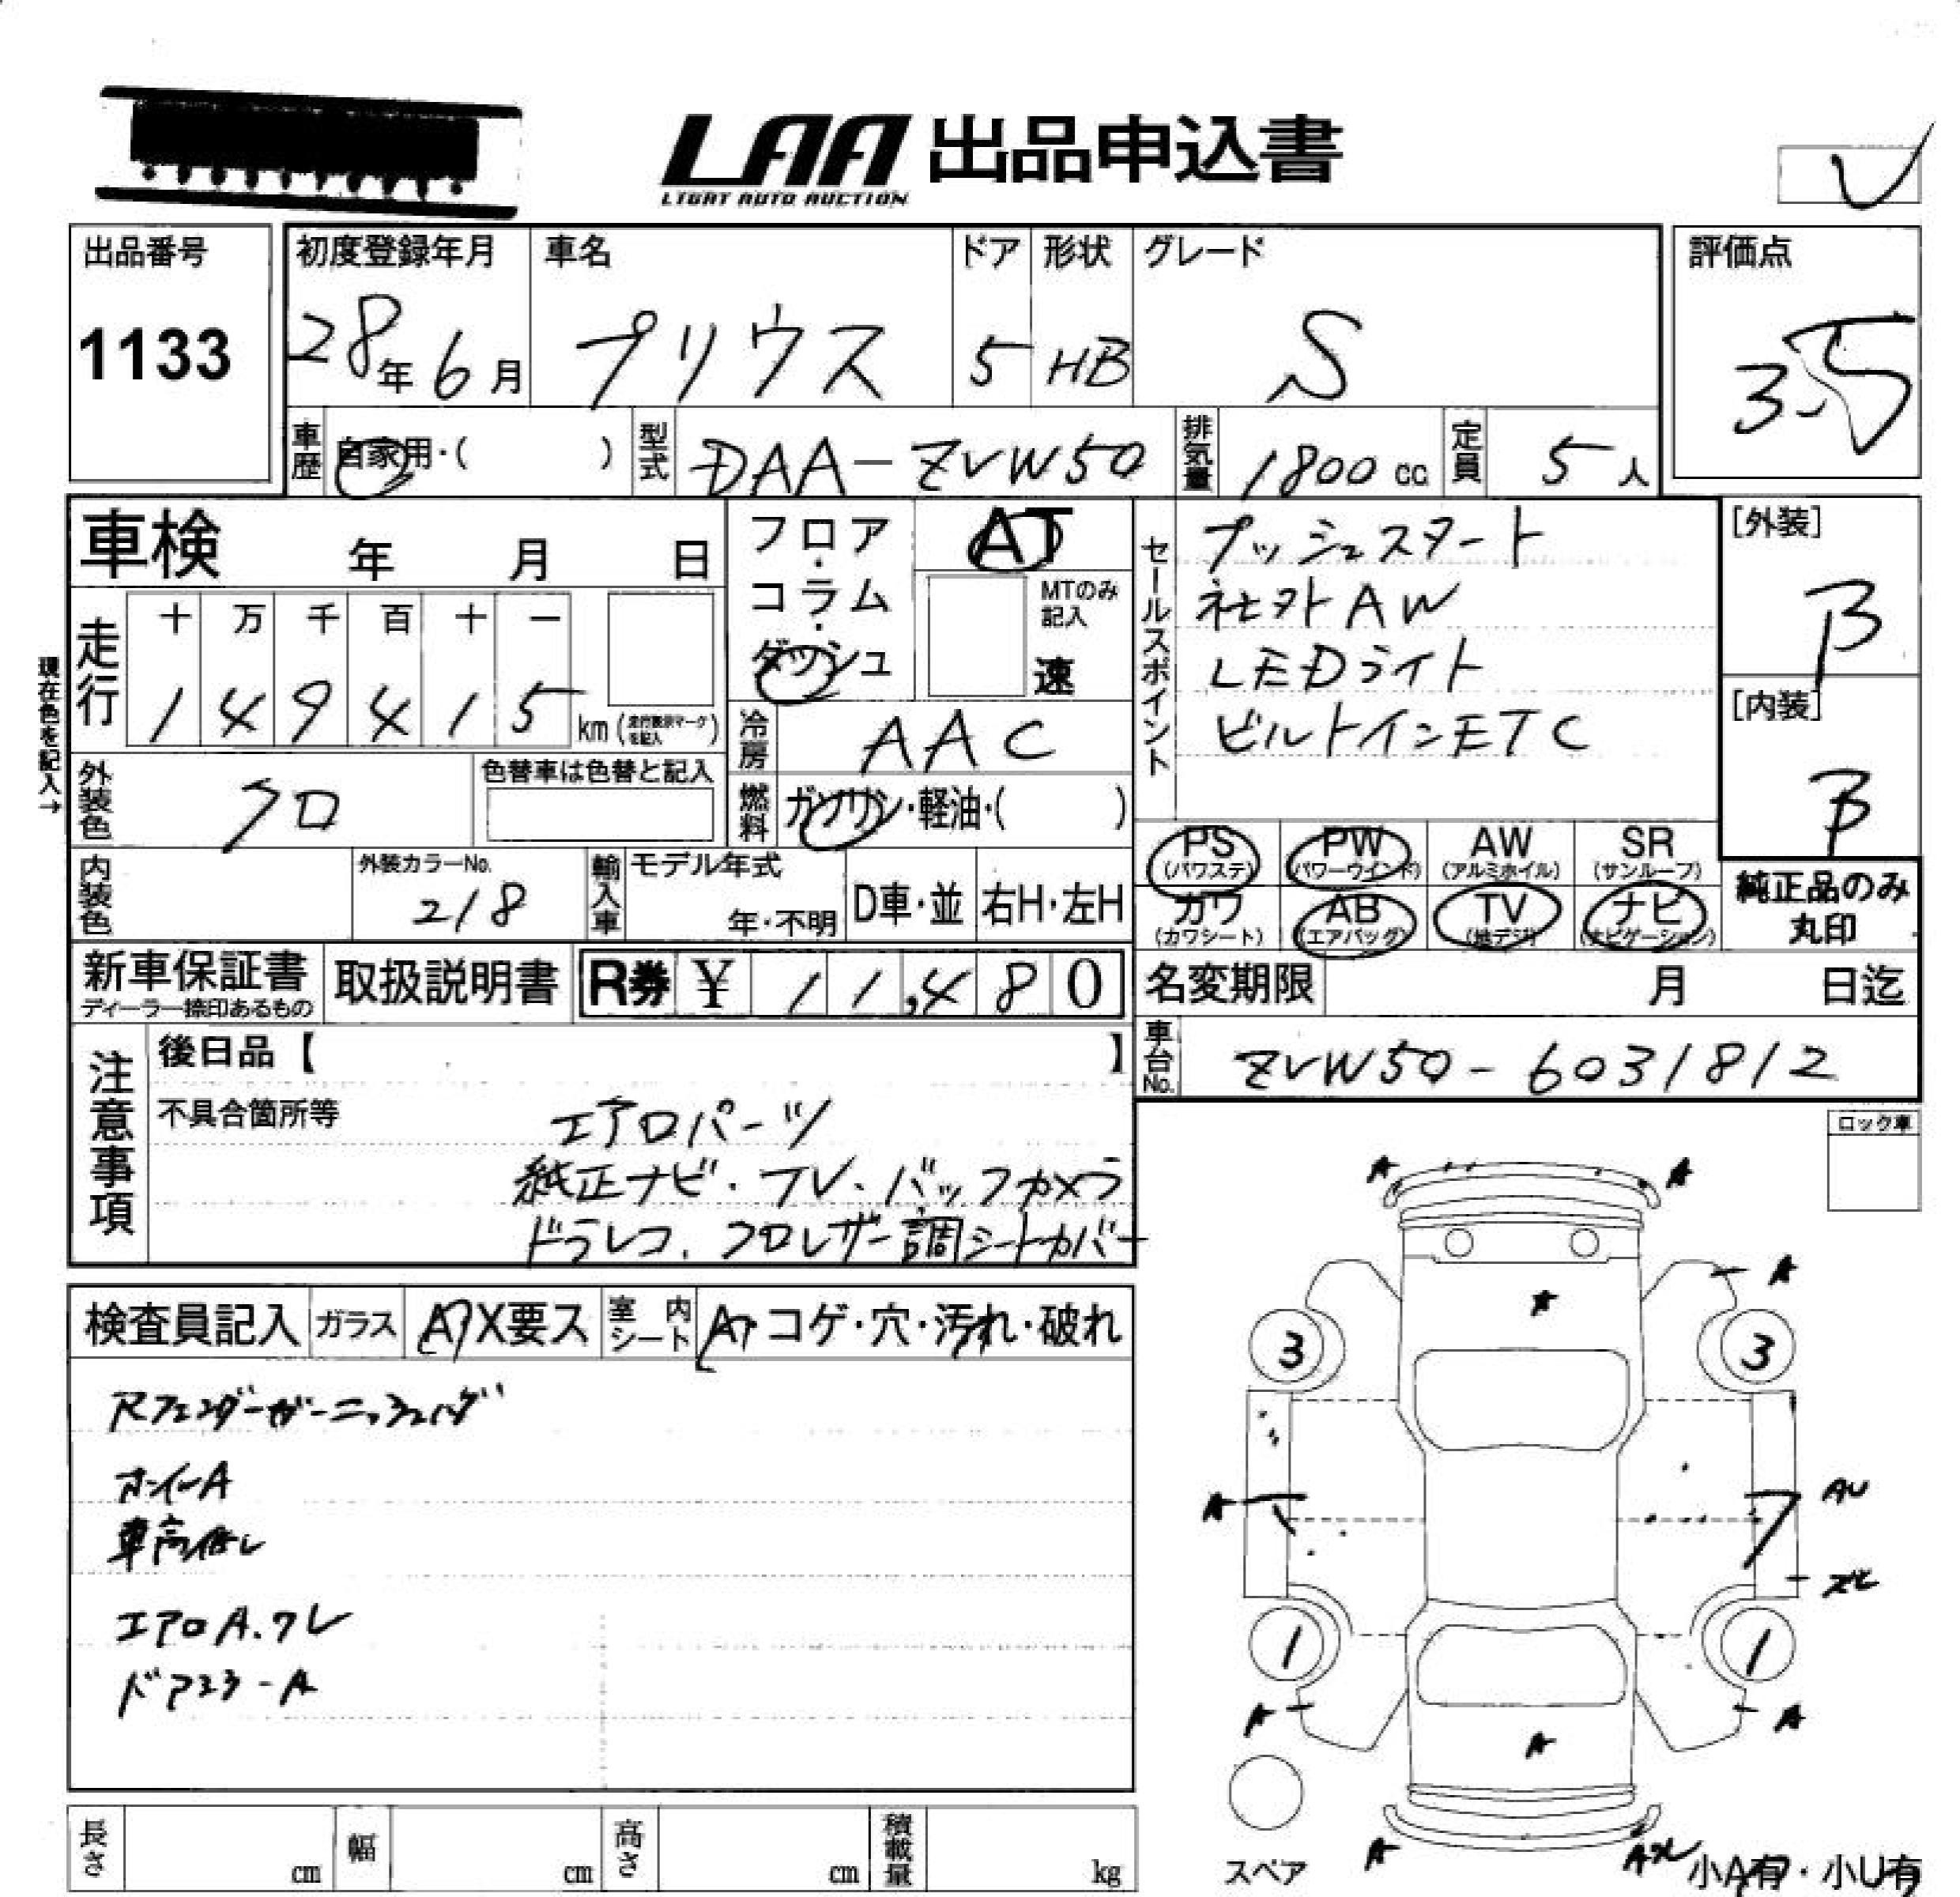 LAA 出品申込書
LIGHT AUTO AUCTION
出品番号
1133
初度登録年月
28年6月
車名
プリウス
ドア
5
形状
HB
グレード
S
評価点
3.5
車歴
自家用・( )
型式
DAA-ZVW50
排気量
1800cc
定員
5人
車検 年 月 日
フロア・コラム・ダッシュ
AT
MTのみ記入
速
走行
十 万 千 百 十 一
1 4 9 4 1 5 km (走行表示マークを記入)
現在色を記入→
外装色
クロ
色替車は色替と記入
冷房
AAC
燃料
ガソリン・軽油・( )
内装色
外装カラーNo.
218
輸入車
モデル年式
年・不明
D車・並
右H・左H
セールスポイント
プッシュスタート
社外AW
LEDライト
ビルトインETC
[外装]
B
[内装]
B
PS (パワステ)
PW (パワーウインド)
AW (アルミホイル)
SR (サンルーフ)
カワ (カワシート)
AB (エアバッグ)
TV (地デジ)
ナビ (ナビゲーション)
純正品のみ丸印
新車保証書
ディーラー捺印あるもの
取扱説明書
R券 ¥ 11,480
名変期限 月 日迄
車台No.
ZVW50-6031812
注意事項
後日品【 】
不具合箇所等
エアロパーツ
純正ナビ・TV・バックカメラ
ドラレコ、クロレザー調シートカバー
ロック車
検査員記入
ガラス
A X要ス
室内シート
A コゲ・穴・汚れ・破れ
Rフェンダーガーニッシュハゲ
ホイールA
車高低し
エアロA.ワレ
ドアミラーA
A A
A
A
3 3
A AU
1 1
A A
A
A
スペア
小A有・小U有
長さ cm
幅 cm
高さ cm
積載量 kg